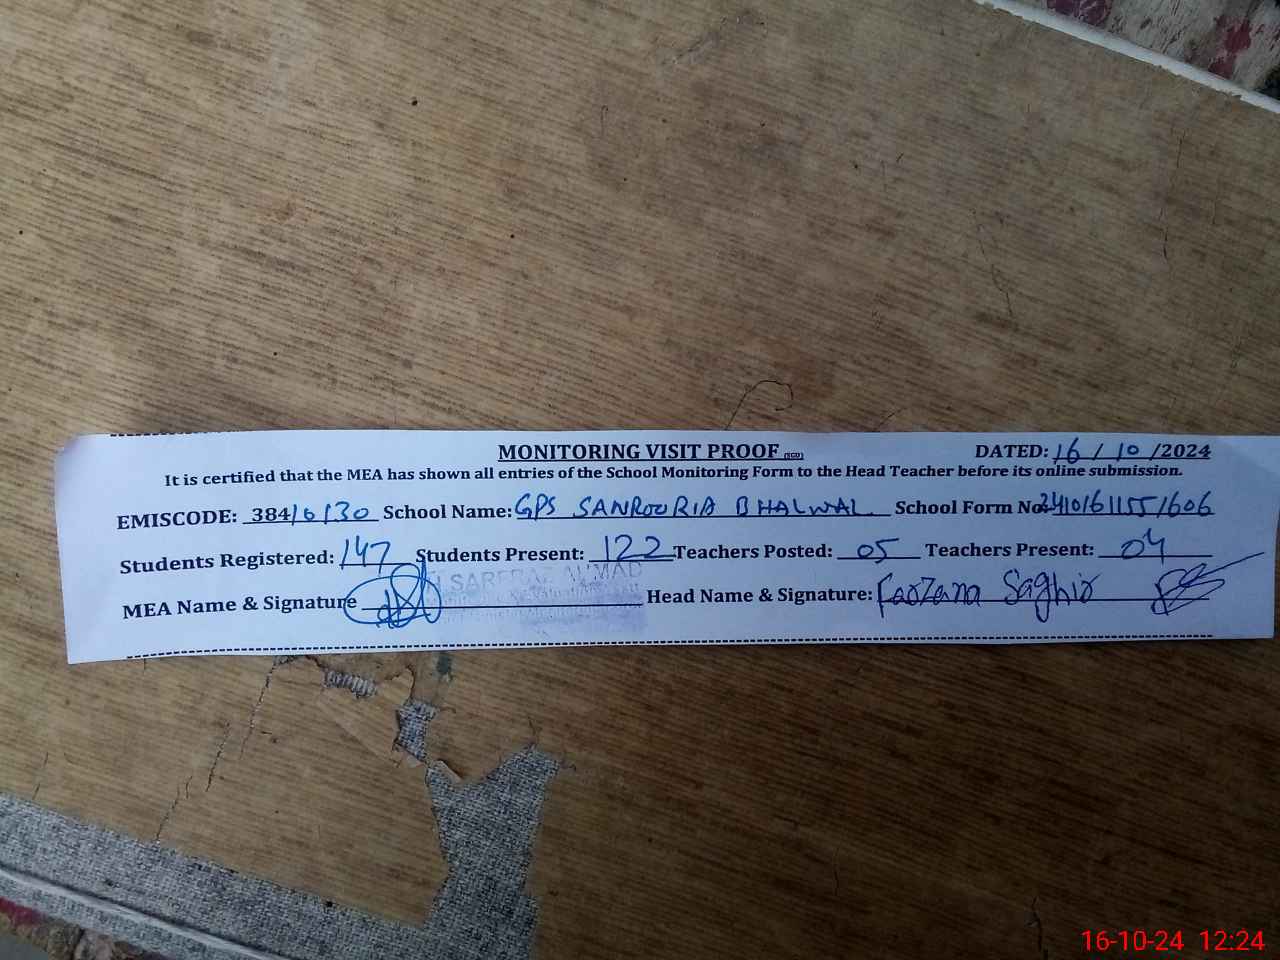 MONITORING VISIT PROOF (SGD) DATED: 16/10/2024
It is certified that the MEA has shown all entries of the School Monitoring Form to the Head Teacher before its online submission.
EMISCODE: 38410130 School Name: GPS SANROORIA BHALWAL School Form No: 24101611551606
Students Registered: 147 Students Present: 122 Teachers Posted: 05 Teachers Present: 04
SARFRAZ AHMAD
MEA Name & Signature Head Name & Signature: Farzana Saghir
16-10-24 12:24